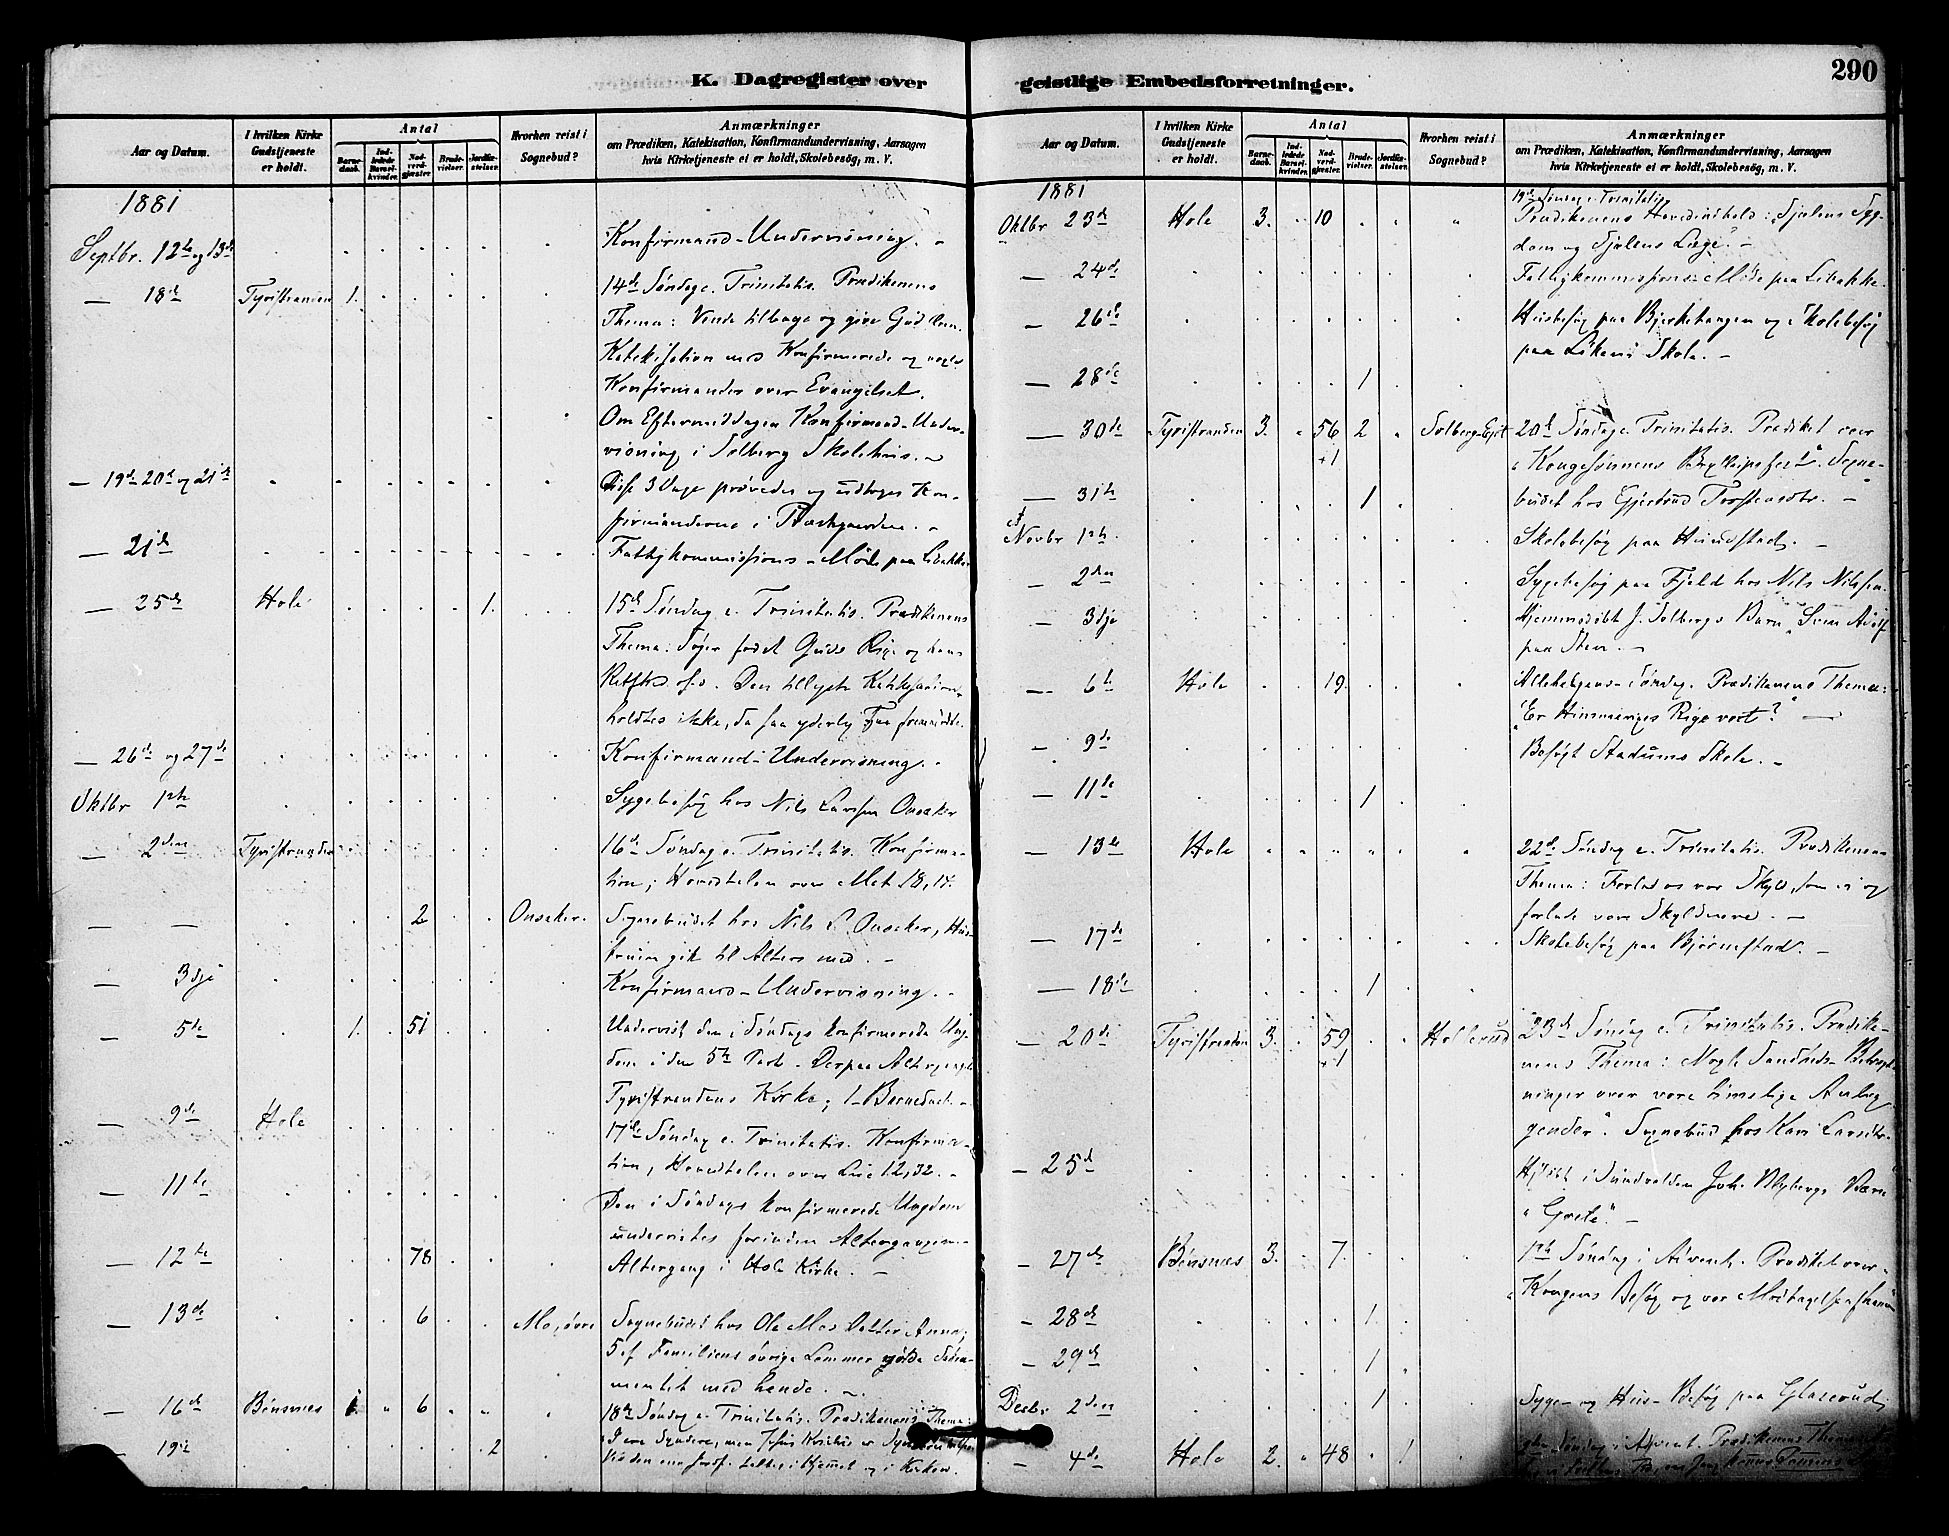 K. Dagregister over
Aar og Datum.
I hvilken Kirke Gudstjeneste er holdt.
Antal
Barnedaab.
Indledede Barselkvinder.
Nadverdgjæster.
Brudevielser.
Jordfæstelser.
Hvorhen reist i Sognebud?
Anmærkninger
om Prædiken, Katekisation, Konfirmandundervisning, Aarsagen
hvis Kirketjeneste ei er holdt, Skolebesög, m. V.
1881
Septbr. 12te og 13de Konfirmand-Undervisning.
— 18de Tyristranden 1. 14de Søndag e. Trinitatis. Prædikenens
Thema: Vende tilbage og give Gud
Katekisation med Konfirmerede og nogle
Konfirmander over Evangeliet.
Om Eftermiddagen Konfirmand-Under-
visning i Solberg Skolehus.
— 19de 20de og 21de Disse 3 Dage prøvedes og udtoges Kon-
firmanderne i Præstgaarden.
— 21de Fattigkommissions-Møde paa Libakke
— 25de Hole 1. 15de Søndag e. Trinitatis. Prædikenens
Thema: Søger først Guds Rige og hans
Retfd. o.s.v. Den tillyste Katekisation
holdtes ikke, da saa yderlig Faa fremmødte.
— 26de og 27de Konfirmand-Undervisning.
Oktbr 1ste Sygebesøg hos Nils Larsen Onsaker
— 2den Tyristranden 16de Søndag e. Trinitatis. Konfirma-
tion; Hovedtalen over Mat 18,14.
— — 2 Onsaker. Sognebudet hos Nils L Onsaker, Hus-
truen gik til Alters med.
— 3dje Konfirmand-Undervisning.
— 5te 1. 51 Undervist den i Søndags konfirmerede Ung-
dom i den 5te Part. Derpaa Altergang i
Tyristrandens Kirke; 1 Barnedaab.
— 9de Hole 17de Søndag e. Trinitatis. Konfirma-
tion, Hovedtalen over Luc 12,32.
— 11te Den i Søndags konfirmerede Ungdom
undervistes forinden Altergangen.
— 12te 78 Altergang i Hole Kirke.
— 13de 6 Mo, øvre Sognebudet hos Ole Moes Datter Anna;
5 af Familiens øvrige Lemmer nøde Sakra-
mentet med hende.
— 16de Bønsnes 1. 6 18de Søndag e. Trinitatis. Prædikenens Thema:
— 19de 2 Synder, men Jesus Kristus er
i Hjemmet og i Kirken.
geistlige Embedsforretninger.
290
Aar og Datum.
I hvilken Kirke Gudstjeneste er holdt.
Antal
Barnedaab.
Indledede Barselkvinder.
Nadverdgjæster.
Brudevielser.
Jordfæstelser.
Hvorhen reist i Sognebud?
Anmærkninger
om Prædiken, Katekisation, Konfirmandundervisning, Aarsagen
hvis Kirketjeneste ei er holdt, Skolebesög, m. V.
1881 19de Søndag e. Trinitatis
Oktbr 23de Hole 3. 10 Prædikenens Hovedindhold: Sjælens Syg-
dom og Sjælens Læge.
— 24de Fattigkommissions-Møde paa Libakke.
— 26de Husbesøg paa Bjerketangen og Skolebesøg
paa Løkens Skole.
— 28de 1
— 30de Tyristranden 3. 56 +1 2 Solberg-Ejet 20de Søndag e. Trinitatis. Prædiket over
"Kongesønnens Bryllupsfest". Sogne-
— 31te 1 budet hos Gjertrud Torstensdtr.
Novbr 1ste Skolebesøg paa Hundstad.
— 2den Sygebesøg paa Fjeld hos Nils Nilsen.
— 3dje Hjemmedøbt J. Solbergs Barn "Sven Adolf"
paa Sten.
— 6te Hole 19. Allehelgens-Søndag. Prædikenens Thema:
"Er Himmeriges Rige vort?"
— 9de Besøgt Stadums Skole.
— 11te 1
— 13de Hole 22de Søndag e. Trinitatis. Prædikenens
Thema: Forlad os vor Skyld, som vi og
forlade vore Skyldnere.
— 17de Skolebesøg paa Bjørnstad.
— 18de 1
— 20de Tyristranden 3. 59 +1 Hollerud 23de Søndag e. Trinitatis. Prædike-
nens Thema: Nogle Betragt-
ninger over vore timelige Anlig-
gender". Sognebud hos Kari Larsdtr.
— 25de Hjdøbt i Sundvolden Joh. Blybergs Barn
"Grete".
— 27de Bønsnes 3. 7. 1ste Søndag i Advent. Prædiket over
"Kongens Besøg og vor Modtagelse af ham"
— 28de 1
— 29de 1
Decbr 2den 1 Syge- og Hus-Besøg paa Glaserud
— 4de Hole 2. 48 1 Søndag i Advent. Prædikenens Thema